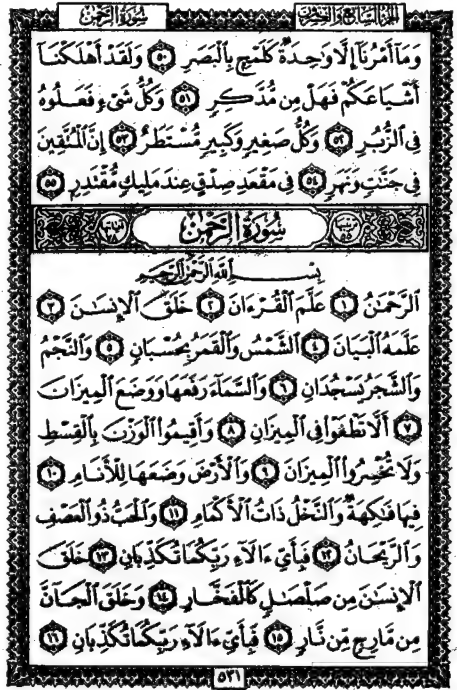 سُورَةُ الرَّحْمٰن
الجُزءُ السَّابِعُ وَالعِشْرُونَ
وَمَآ أَمْرُنَآ إِلَّا وَٰحِدَةٌ كَلَمْحٍۭ بِٱلْبَصَرِ ٥٠ وَلَقَدْ أَهْلَكْنَآ
أَشْيَاعَكُمْ فَهَلْ مِن مُّدَّكِرٍ ٥١ وَكُلُّ شَىْءٍ فَعَلُوهُ
فِى ٱلزُّبُرِ ٥٢ وَكُلُّ صَغِيرٍ وَكَبِيرٍ مُّسْتَطَرٌ ٥٣ إِنَّ ٱلْمُتَّقِينَ
فِى جَنَّٰتٍ وَنَهَرٍ ٥٤ فِى مَقْعَدِ صِدْقٍ عِندَ مَلِيكٍ مُّقْتَدِرٍۭ ٥٥
سُورَةُ الرَّحْمٰن
بِسْمِ ٱللَّهِ ٱلرَّحْمَٰنِ ٱلرَّحِيمِ
ٱلرَّحْمَٰنُ ١ عَلَّمَ ٱلْقُرْءَانَ ٢ خَلَقَ ٱلْإِنسَٰنَ ٣
عَلَّمَهُ ٱلْبَيَانَ ٤ ٱلشَّمْسُ وَٱلْقَمَرُ بِحُسْبَانٍ ٥ وَٱلنَّجْمُ
وَٱلشَّجَرُ يَسْجُدَانِ ٦ وَٱلسَّمَآءَ رَفَعَهَا وَوَضَعَ ٱلْمِيزَانَ
٧ أَلَّا تَطْغَوْا۟ فِى ٱلْمِيزَانِ ٨ وَأَقِيمُوا۟ ٱلْوَزْنَ بِٱلْقِسْطِ
وَلَا تُخْسِرُوا۟ ٱلْمِيزَانَ ٩ وَٱلْأَرْضَ وَضَعَهَا لِلْأَنَامِ ١٠
فِيهَا فَٰكِهَةٌ وَٱلنَّخْلُ ذَاتُ ٱلْأَكْمَامِ ١١ وَٱلْحَبُّ ذُو ٱلْعَصْفِ
وَٱلرَّيْحَانُ ١٢ فَبِأَىِّ ءَالَآءِ رَبِّكُمَا تُكَذِّبَانِ ١٣ خَلَقَ
ٱلْإِنسَٰنَ مِن صَلْصَٰلٍ كَٱلْفَخَّارِ ١٤ وَخَلَقَ ٱلْجَآنَّ
مِن مَّارِجٍ مِّن نَّارٍ ١٥ فَبِأَىِّ ءَالَآءِ رَبِّكُمَا تُكَذِّبَانِ ١٦
٥٣١